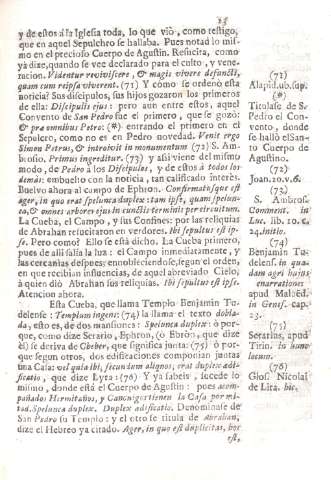 25
y de estos à la Iglesia toda, lo que viò, como testigo,
que en aquel Sepulchro se hallaba. Pues notad lo mis-
mo en el precioso Cuerpo de Agustin. Resucita, como
yà dixe, quando se vee declarado para el culto, y vene-
racion. Videntur reviviscere, & magis vivere defuncti,
quam cum reipsa viverent. (71) Y como se ordenò esta
noticia? Sus discipulos, sus hijos gozaron los primeros
de ella: Discipulis ejus: pero aun entre estos, aquel
Convento de San Pedro fue el primero, que se gozó:
& præ omnibus Petrus: (#) entrando el primero en el
Sepulcro, como no es en Pedro novedad. Venit ergo
Simon Petrus, & introivit in monumentum (72) S. Am-
brosio, Primus ingreditur. (73) y asi viene del mismo
modo, de Pedro à los Discipulos, y de estos à todos los
demàs: embuelto con la noticia, tan calificado interès.
Buelvo ahora al campo de Ephron. Confirmatusque est
ager, in quo erat spelunca duplex: tam ipse, quam spelun-
ca, & omnes arbores ejus in cunctis terminis per circuitum.
La Cueba, el Campo, y sus Confines: por las reliquias
de Abrahan resucitaron en verdores. Ibi sepultus est ip-
se. Pero como? Ello se està dicho. La Cueba primero,
pues de alli salìa la luz: el Campo inmediatamente, y
las cercanìas despues: ennobleciendose, segun el orden,
en que recibian influencias, de aquel abreviado Cielo,
à quien diò Abrahan sus reliquias. Ibi sepultus est ipse.
Atencion ahora.
Esta Cueba, que llama Templo Benjamin Tu-
delense: Templum ingens: (74) la llama el texto dobla-
da, esto es, de dos mansiones: Spelunca duplex: ò por-
que, como dize Serario, Ephron, (ò Ebròn, que dize
èl) se deriva de Cheber, que significa junta: (75) ò por-
que segun otros, dos edificaciones componian juntas
una Casa: vel quia ibi, secundum aliquos, erat duplex ædi-
ficatio, que dize Lyra: (76) Y ya sabeis, sucede lo
mismo, donde està el Cuerpo de Agustin: pues acom-
pañado: Hermitaños, y Canonigos tienen la Casa por mi-
tad. Spelunca duplex. Duplex ædificatio. Denominase de
San Pedro su Templo: y el otro se titula de Abrahan;
dize el Hebreo ya citado. Ager, in quo est duplicitas, hoc
est,
(71)
Alapid. ub. sup.
(#)
Titulase de S.
Pedro el Con-
vento, donde
se hallò el San-
to Cuerpo de
Agustino.
(72)
Joan. 20. v. 6.
(73)
S. Ambros.
Comment. in
Luc. lib. 10. c.
24. initio.
(74)
Benjamin Tu-
delens. in qua-
dam agri hujus
enarratione
apud Maloëd.
in Genes. cap.
23.
(75)
Serarius, apud
Tirin. in hunc
locum.
(76)
Glos. Nicolai
de Lira. hic.